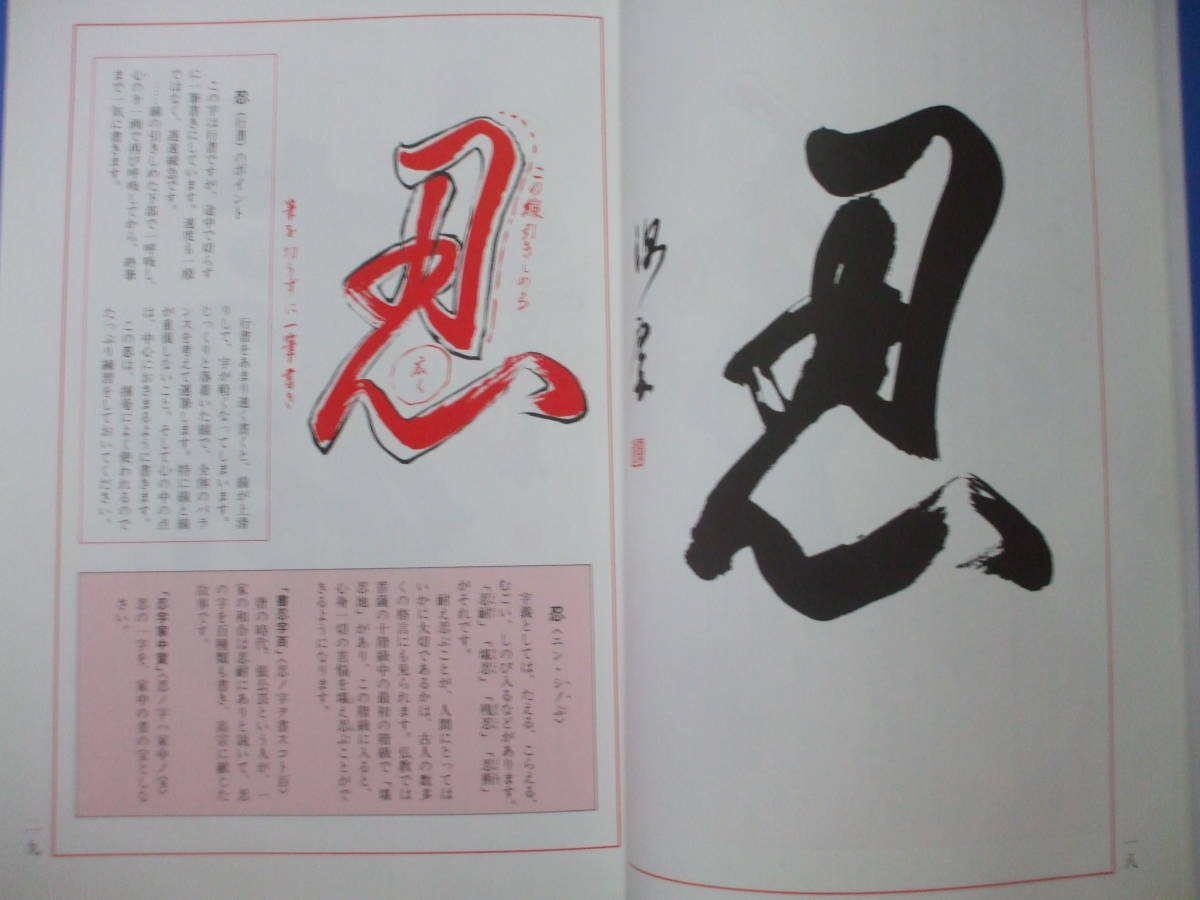 忍
一八
この線引きしめる
広く
忍（行書）のポイント
この字は行書ですが、途中で切らず
に一筆書きにしています。速度も一様
ではなく、遅速緩急です。
……線の引きしめた下部で一呼吸し、
心の第一画で再び呼吸してから、終筆
まで一気に書きます。
行書をあまり速く書くと、線が上滑
りして、字が軽くなってしまいます。
じっくりと落着いた線で、全体のバラ
ンスを考えて運筆します。特に線と線
が重複しないこと。そして心の中の点
は、中心におさまるように書きます。
この忍は、揮毫によく使われるので
たっぷり練習をしておいてください。
忍（ニン・シノぶ）
字義としては、たえる、こらえる、
むごい、しのび入るなどがあります。
「忍耐」「堪忍」「残忍」「忍術」
がそれです。
耐え忍ぶことが、人間にとっては
いかに大切であるかは、古人の数多
くの格言にも見られます。仏教では
菩薩の十階級中の最初の階級で「堪
忍地」があり、この階級に入ると、
心身一切の苦悩を堪え忍ぶことがで
きるようになります。
「書忍字百」〈忍ノ字ヲ書スコト百〉
唐の時代、張公芸という人が、一
家の和合は忍耐にありと説いて、忍
の字を百種類も書き、高宗に献じた
故事です。
「忍字家中宝」〈忍ノ字ハ家中ノ宝〉
忍の一字を、家中の者の宝としな
さい。
一九